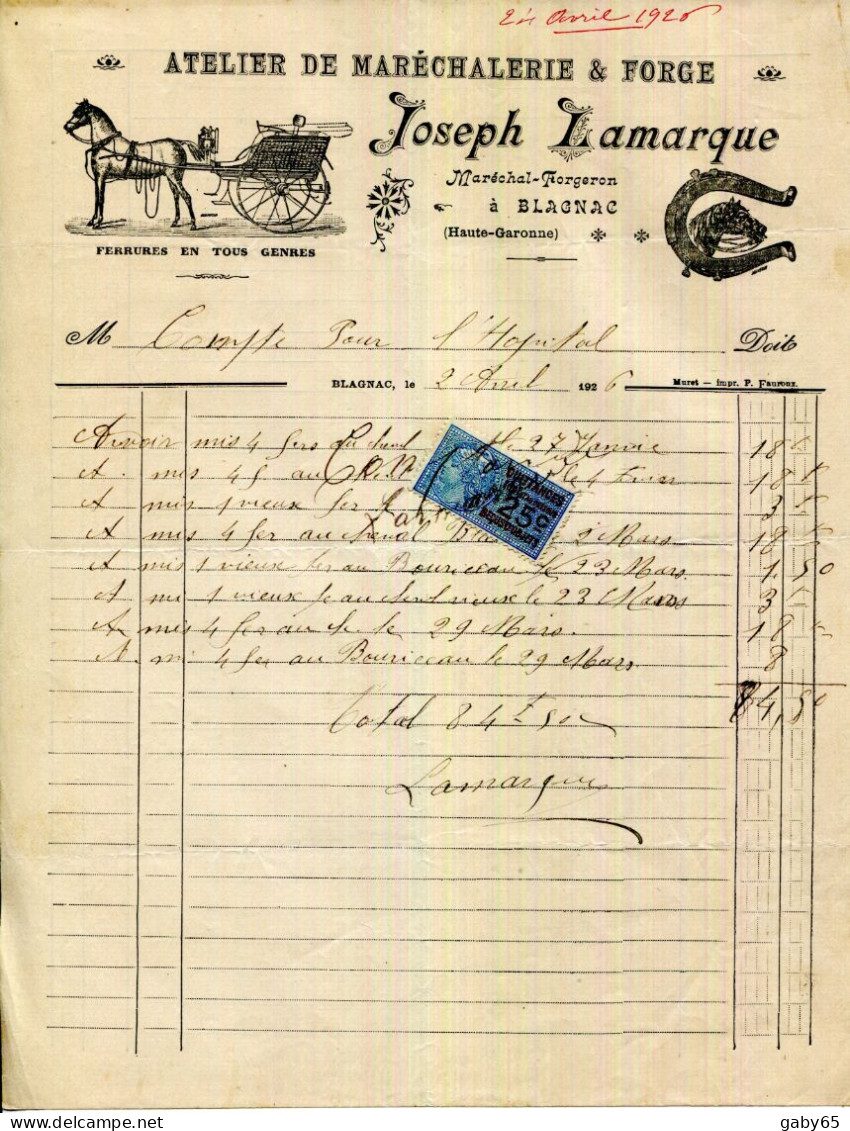 24 Avril 1926
ATELIER DE MARÉCHALERIE & FORGE
Joseph Lamarque
Maréchal-Forgeron
à BLAGNAC
(Haute-Garonne)
FERRURES EN TOUS GENRES
M Compte Pour l'Hopital Doit
BLAGNAC, le 2 Avril 1926 Muret — impr. P. Fauroux.
Avoir mis 4 fers au cheval le 27 Janvie 18 f
A. mis 4 f au le 4 18 f
A mis 1 vieux fer 3 f
A mis 4 fer au cheval 2 Mars 18 f
A mis 1 vieux fer au Bouriceau le 23 Mars 1. 50
A mi 1 vieux fe au vieux le 23 Mars 3 f
A mis 4 fer au ch. le 29 Mars. 18 f
A. mi 4 fer au Bouriceau le 29 Mars 8
84,50
25c
Total 84 f 50
Lamarque
gaby65